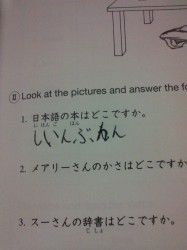 Ⅱ Look at the pictures and answer the fo
1. 日本語の本はどこですか。
に ほん ご ほん
しいんぶんん
2. メアリーさんのかさはどこですか
3. スーさんの辞書はどこですか
じ しょ